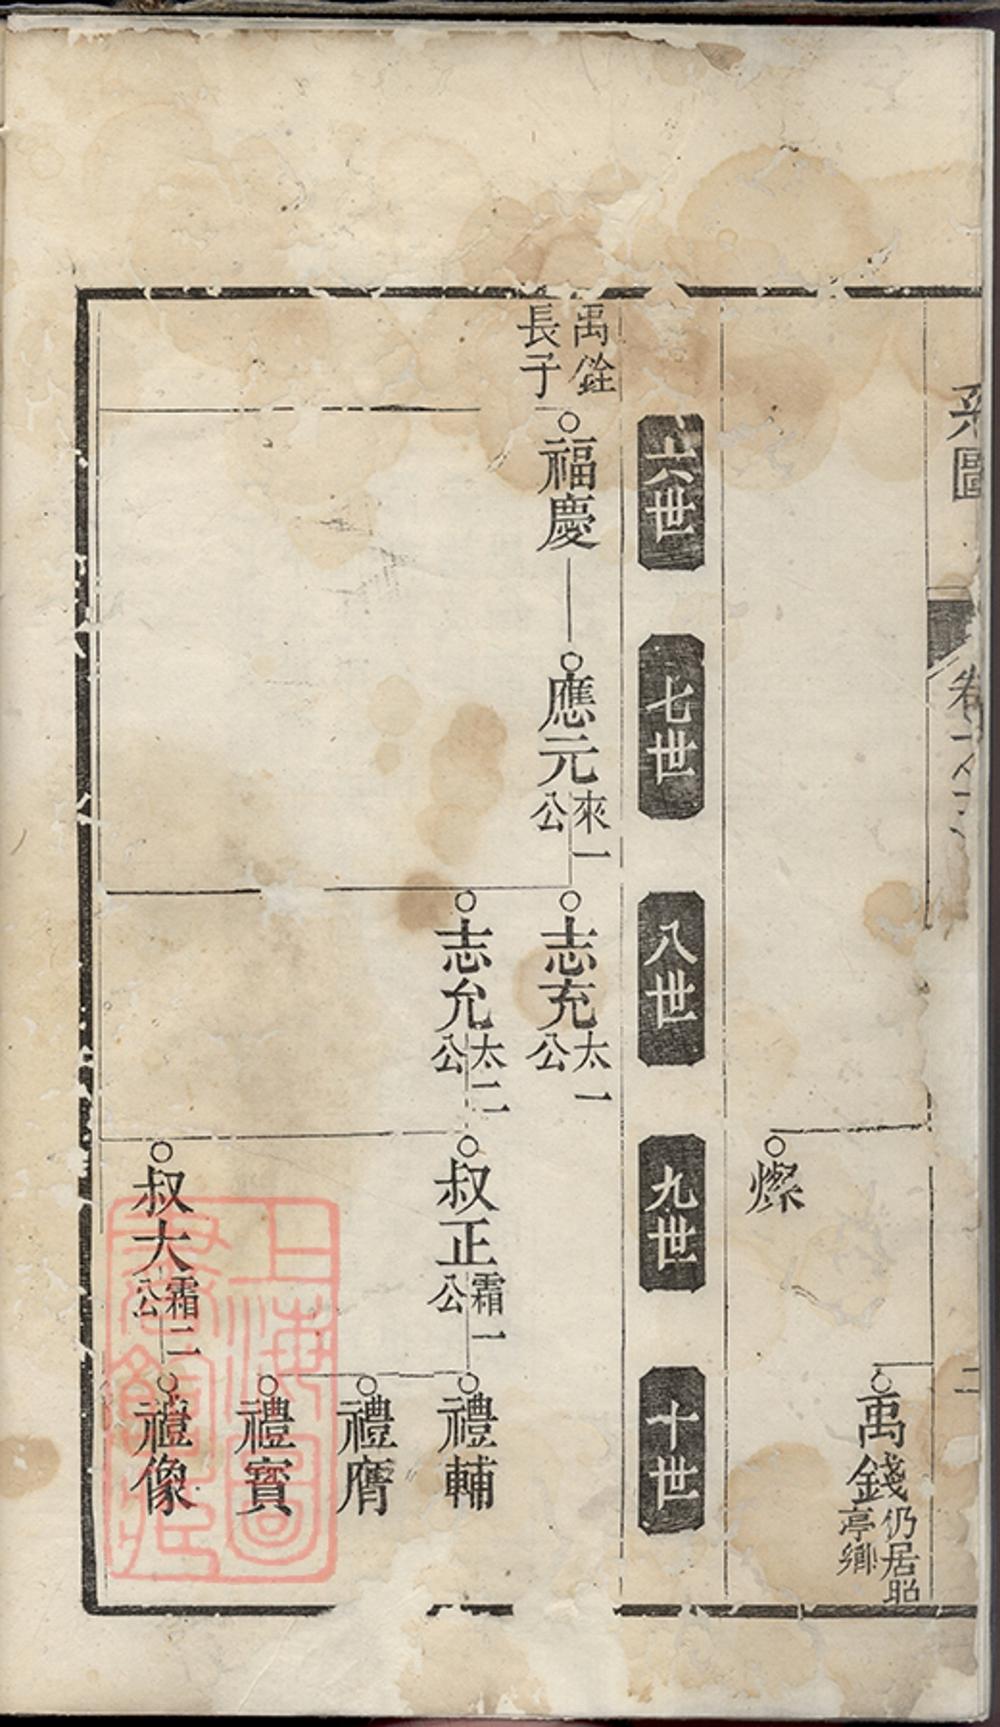 系圖
卷
二
禹錢仍居昭亭鄉
燦
六世
七世
八世
九世
十世
禹銓長子
福慶
應元來一公
志充太一公
志允太二公
叔正霜一公
叔大霜二公
禮輔
禮膺
禮寶
禮像
上海圖書館藏